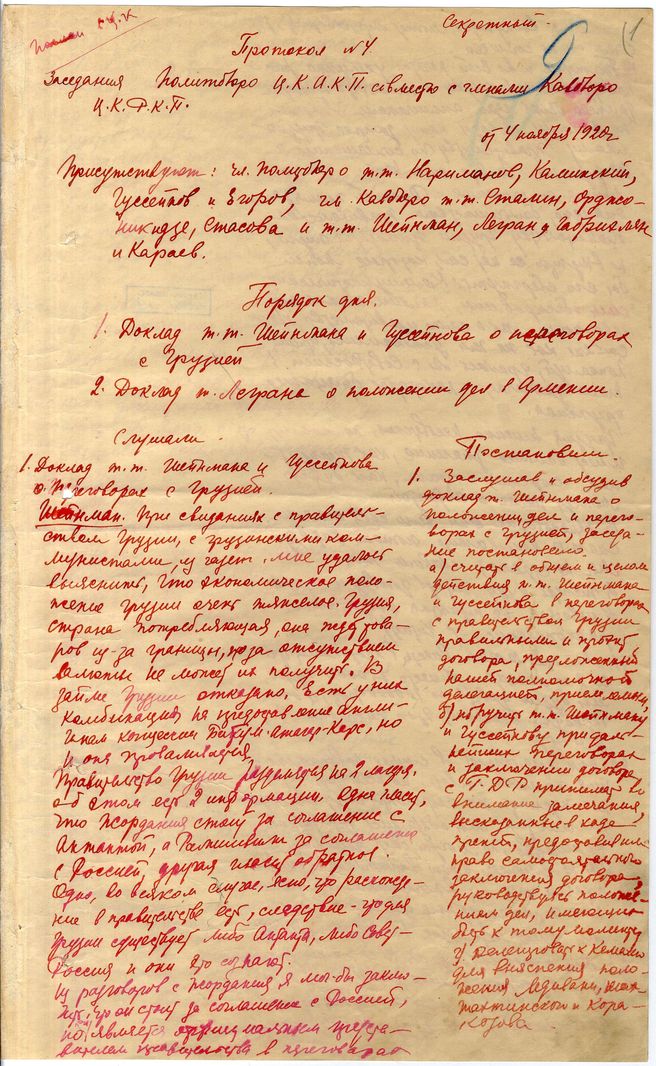 Секретный.
(1
Протокол №4
Заседания Политбюро Ц.К.А.К.П. совместно с членами Кавбюро
Ц.К.Р.К.П.
от 4 ноября 1920г
Присутствуют: чл. Политбюро т.т. Нариманов, Каминский,
Гуссейнов и Егоров, чл. Кавбюро т.т. Сталин, Орджо-
никидзе, Стасова и т.т. Шейнман, Легран, Габриелян
и Караев.
Порядок дня.
1. Доклад т.т. Шейнмана и Гуссейнова о переговорах
с Грузией
2. Доклад т. Леграна о положении дел в Армении.
Слушали.
1. Доклад т.т. Шейнмана и Гуссейнова
о переговорах с Грузией.
Шейнман. При свиданиях с правитель-
ством Грузии, с грузинскими ком-
мунистами, из газет мне удалось
выяснить, что экономическое поло-
жение Грузии очень тяжелое. Грузия,
страна потребляющая, она ждет това-
ров из-за границы, но за отсутствием
валюты не может их получить. В
займе Грузии отказано. Есть у них
комбинация на предоставление англи-
чанам концессии Батум-Карс, но
и она провалилась.
Правительство Грузии разделился на 2 лагеря,
об этом есть 2 информации. Одна гласит,
что Жордания стоит за соглашение с
Антантой, а Рамишвили за соглашение
с Россией, другая гласит обратное.
Одно, во всяком случае, ясно, что расхожде-
ние в правительстве есть, следствие - что для
Грузии существует либо Антанта, либо Совет-
Россия и они это сознают.
Из разговоров с Жордания, я мог-бы заклю-
чить, что он стоит за соглашение с Россией,
но является официальным предста-
вителем правительства в переговорах
Постановили.
1. Заслушав и обсудив
доклад т. Шейнмана о
положении дел и перего-
ворах с Грузией, заседа-
ние постановило:
а) считать в общем и целом
действия т.т. Шейнмана
и Гуссейнова в переговорах
с правительством Грузии
правильными и проект
договора, предложенный
нашей полномочной
делегацией, приемлемым,
б) поручить т.т. Шейнману
и Гуссейнову при даль-
нейших переговорах
и заключении договора
с Г.Д.Р принимать во
внимание замечания,
высказанные в ходе
прений, предоставив им
право самостоятельного
заключения договора,
руководствуясь положе-
нием дел, имеющим
быть к тому моменту